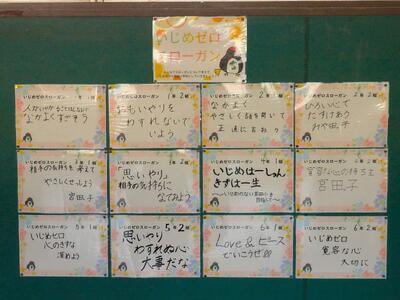 いじめゼロ
スローガン
いじめゼロスローガン 1年1組
なかよくすごそう
いじめゼロスローガン 1年2組
おもいやりを
わすれないで
いよう
いじめゼロスローガン 2年1組
なかよく
やさしく話を聞いて
正直に言おう
いじめゼロスローガン 2年2組
ひろい心で
たすけあう
みや田子
いじめゼロスローガン
相手の気持ちを考えて
やさしくせっしよう
宮田子
いじめゼロスローガン
「思いやり」
相手の気持ちに
なってみよう
いじめゼロスローガン 4年1組
いじめは一しゅん
きずは一生
いじめゼロスローガン
寛容な心の持ち主
宮田子
いじめゼロスローガン 5年1組
いじめゼロ
心のきずな
深めよう
いじめゼロスローガン 5年2組
思いやり
わすれぬ心
大事だな
いじめゼロスローガン 6年1組
Love&ピース
でいこうぜ
いじめゼロスローガン 6年2組
いじめゼロ
寛容な心
大切に